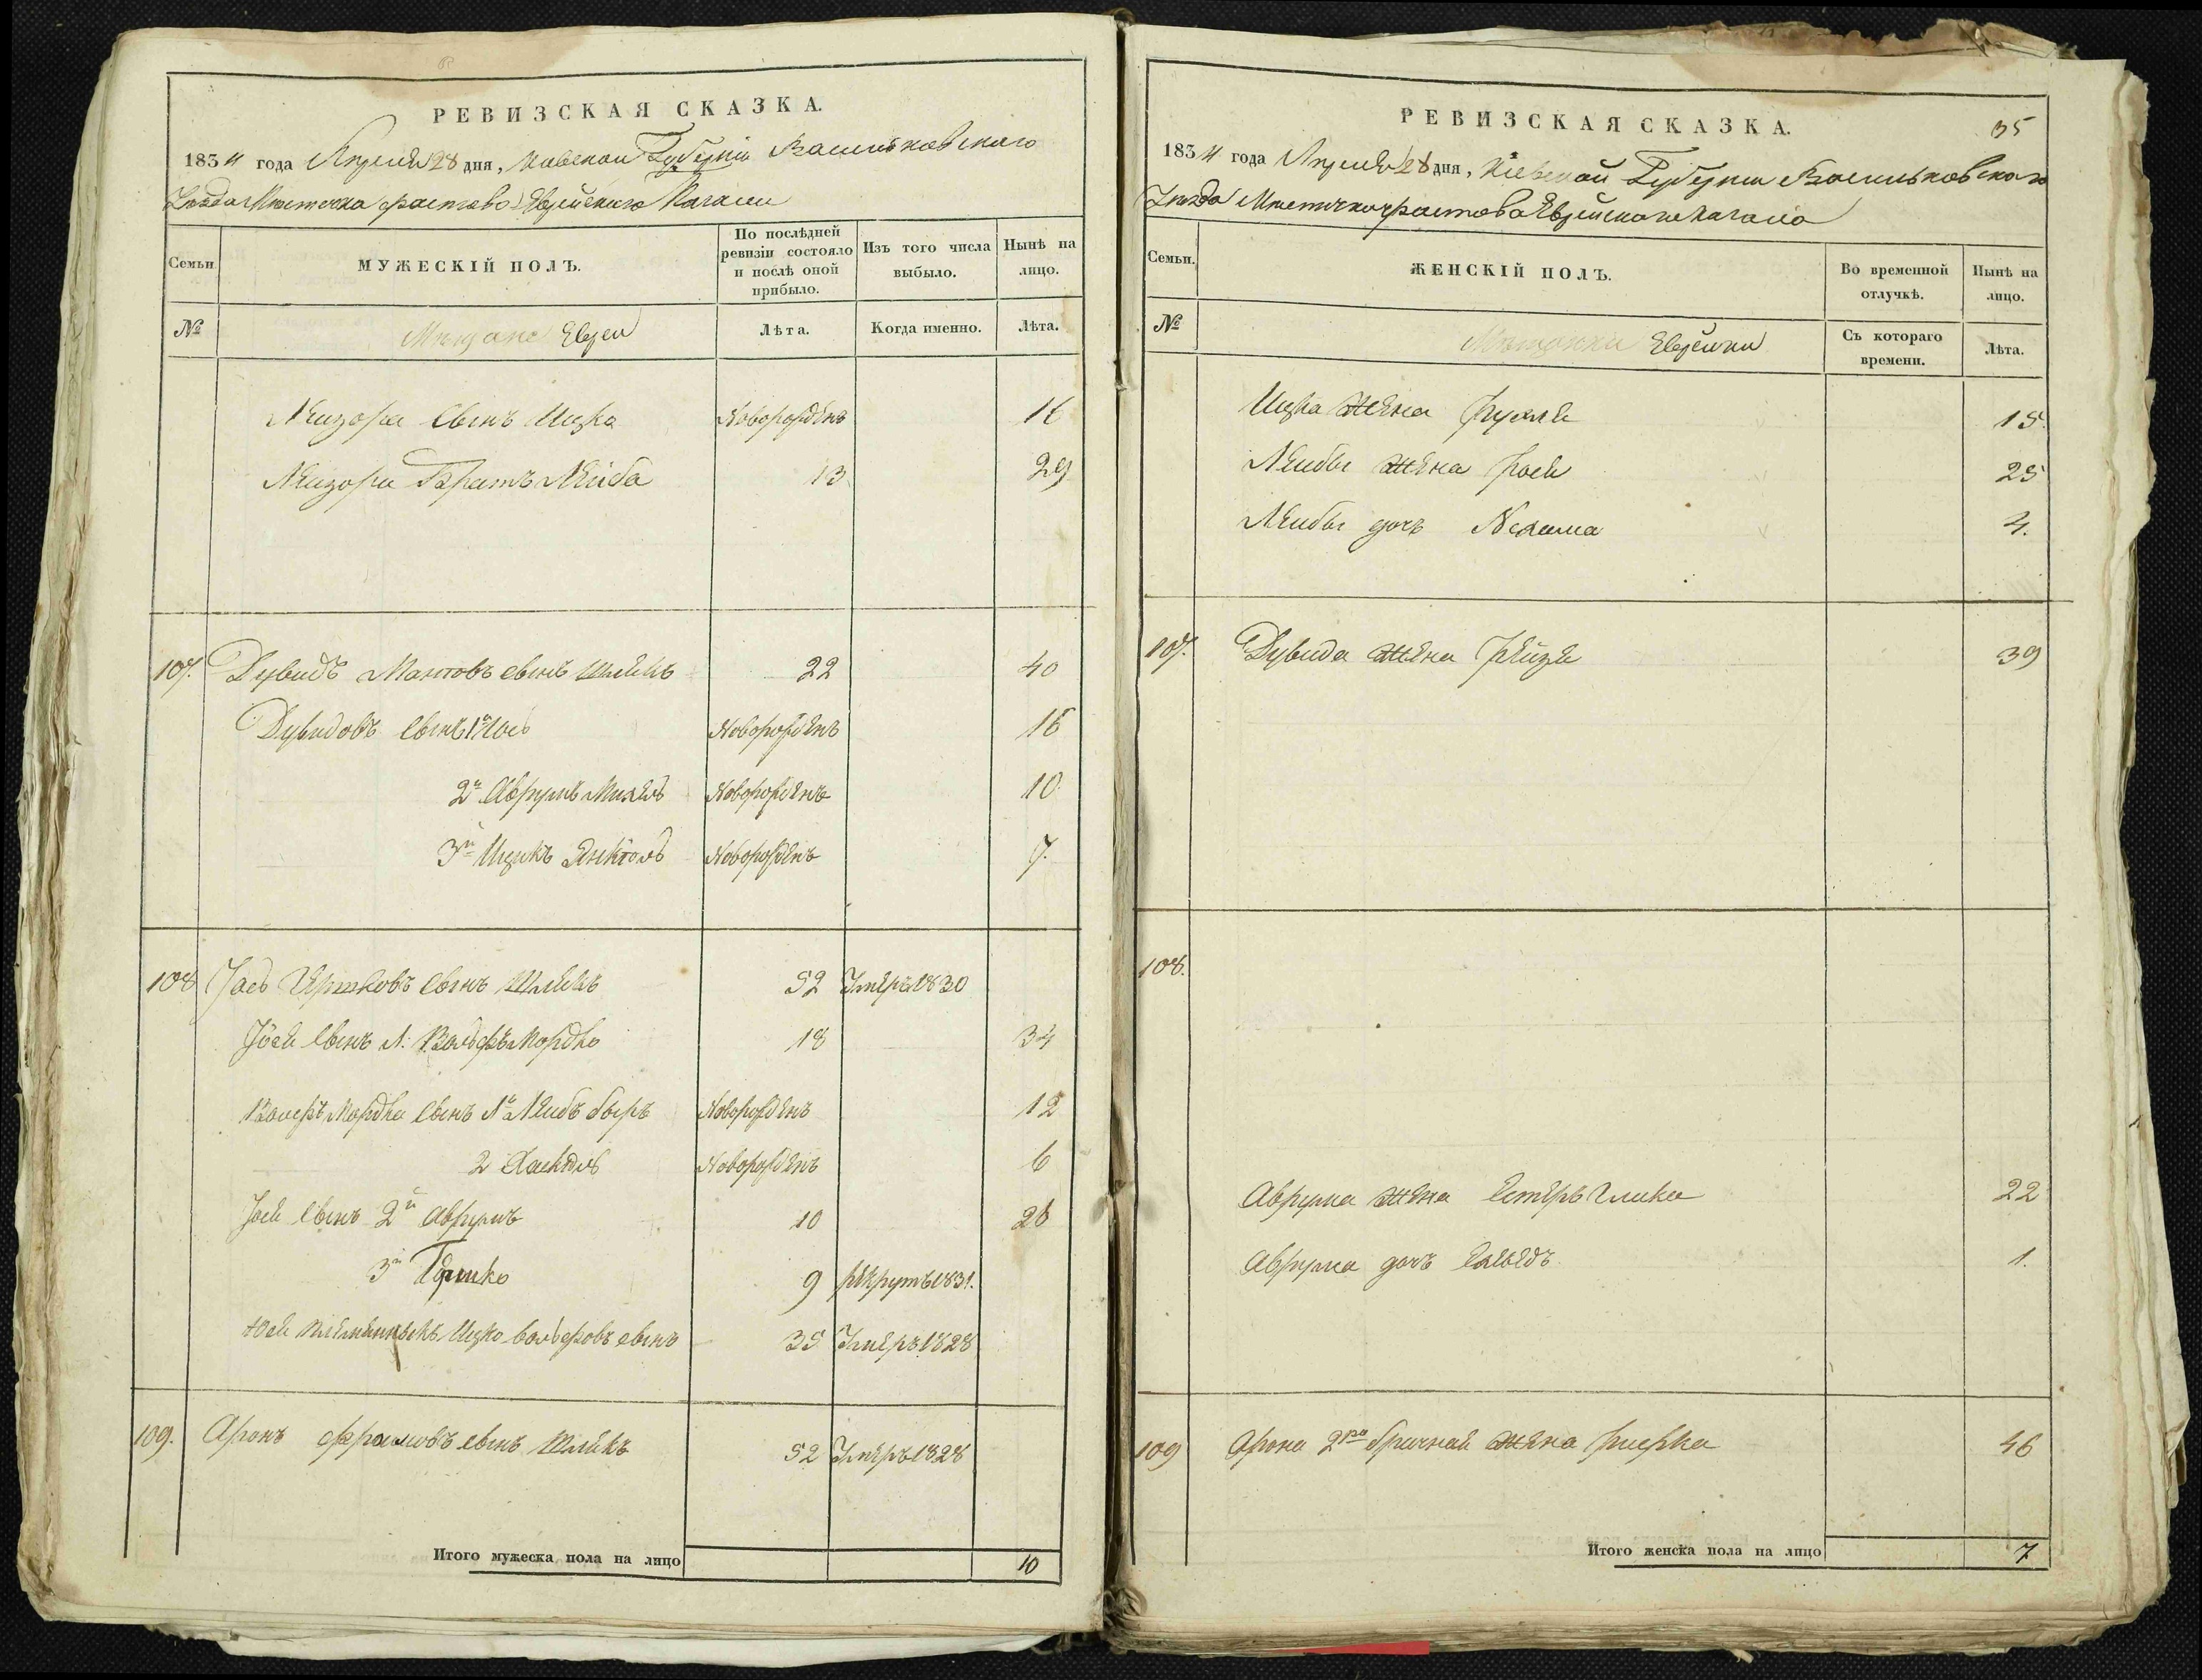 РЕВИЗСКАЯ СКАЗКА.
1834 года Апреля 28 дня, Киевской Губернии Васильковского
Уезда Местечка Фастова Еврейского Кагала
Семьи.
МУЖЕСКІЙ ПОЛЪ.
По послѣдней ревизіи состояло и послѣ оной прибыло.
Изъ того числа выбыло.
Нынѣ на лицо.
№
Мещане Евреи
Лѣта.
Когда именно.
Лѣта.
Лейзора сынъ Ицко Новорожденъ 16
Лейзора Братъ Лейба 13 29
107. Дувидъ сынъ 22 40
Дувидовъ сынъ 1й Иось Новорожденъ 16
2й Аврумъ Михель Новорожденъ 10
3й Ицикъ Янкель Новорожденъ 7.
108 Іось сынъ 52 Умеръ 1830
Іося сынъ 1. Вольфъ Мордко 18 34
Вольфъ Мордка сынъ 1й Лейбъ Беръ Новорожденъ 12
2 Хаскель Новорожденъ 6
Іося сынъ 2й Аврумъ 10 26
3й Гершко 9 рекрутъ 1831.
Іося племянникъ Ицко Вольфовъ сынъ 35 Умеръ 1828
109. Аронъ сынъ 52 Умеръ 1828
Итого мужеска пола на лицо 10
РЕВИЗСКАЯ СКАЗКА.
35
1834 года Апреля 28 дня, Киевской Губернии Васильковского
Уезда Местечка Фастова Еврейского Кагала
Семьи.
ЖЕНСКІЙ ПОЛЪ.
Во временной отлучкѣ.
Нынѣ на лицо.
№
Мещанки Еврейки
Съ котораго времени.
Лѣта.
Ицка жена Рухля 15.
Лейбы жена Рося 25
Лейбы дочь Нехама 4.
107. Дувида жена Рейзя 39
108.
Аврума жена Естеръ Глика 22
Аврума дочь 1.
109 Арона 2ро брачная жена Рифка 46
Итого женска пола на лицо 7